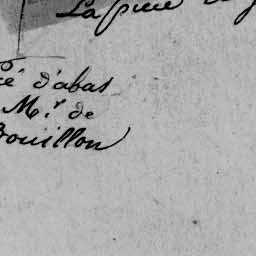 La piece
d'abas
M.r de
Bouillon